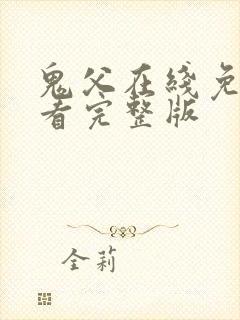 鬼父在线免
看完整版
全莉